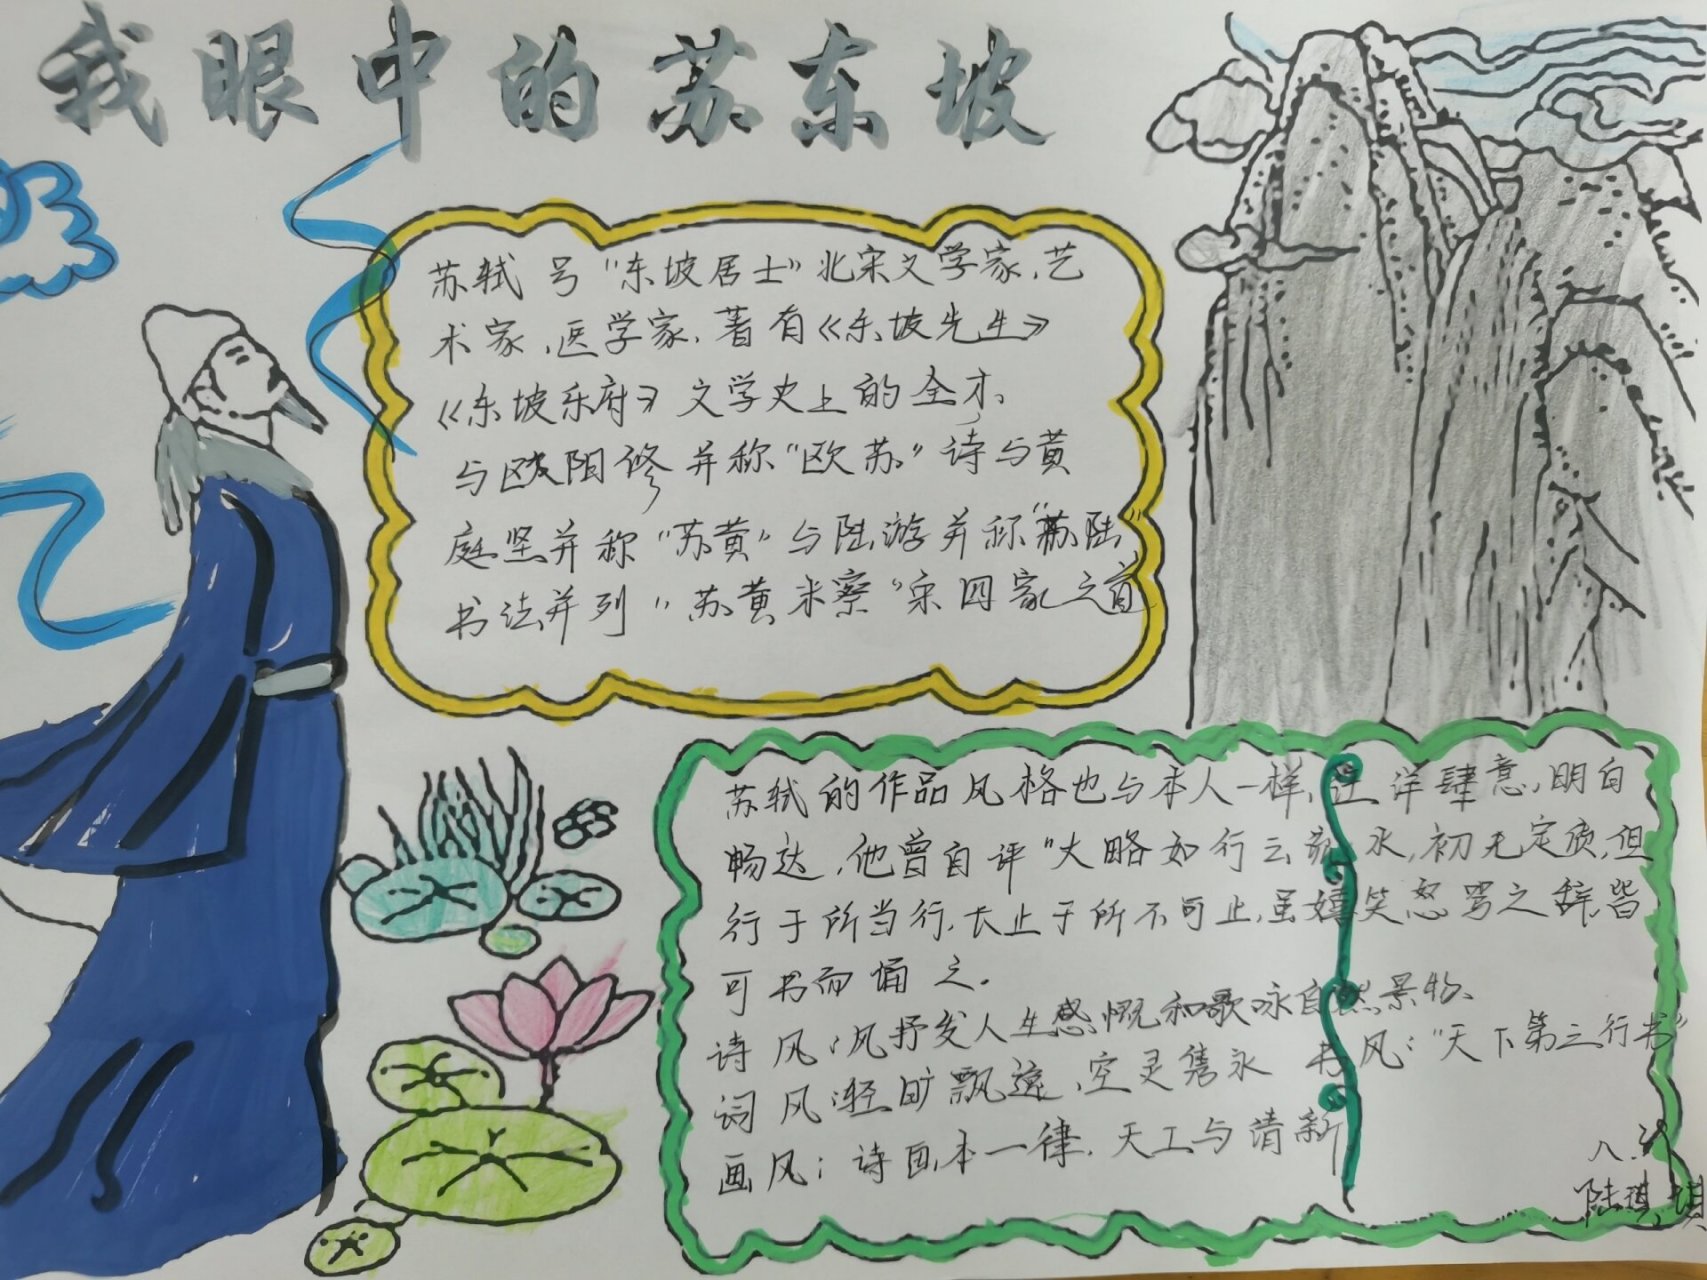 我眼中的苏东坡
苏轼 号“东坡居士”北宋文学家、艺
术家、医学家、著有《东坡先生》
《东坡乐府》文学史上的全才、
与欧阳修并称“欧苏”诗与黄
庭坚并称“苏黄”与陆游并称“苏陆”
书法并列“苏黄米蔡”宋四家之首
苏轼的作品风格也与本人一样,汪洋肆意,明白
畅达,他曾自评“大略如行云流水,初无定质,但
行于所当行,长止于所不可止,虽嬉笑怒骂之辞,皆
可书而诵之。
诗风:风抒发人生感慨和歌咏自然景物、
词风:轻旷飘逸、空灵隽永 书风:“天下第三行书”
画风:诗画本一律,天工与清新
陆琪琪